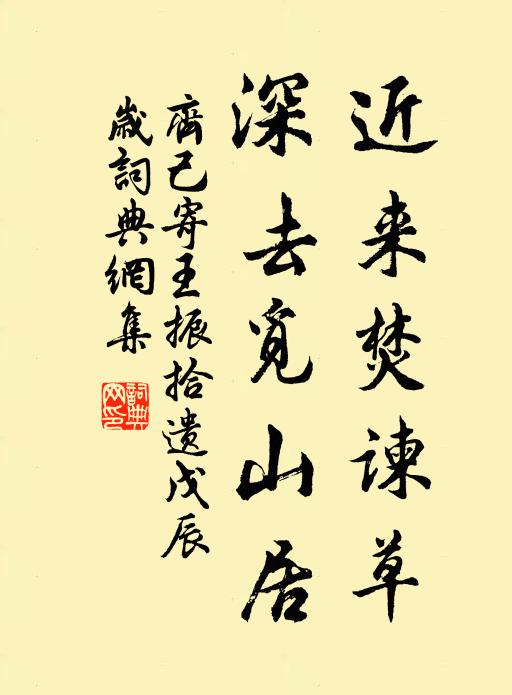 近来焚諫草
深去覓山居
齊己寄王振拾遺戊辰
歲詞典網集
詞典
网印